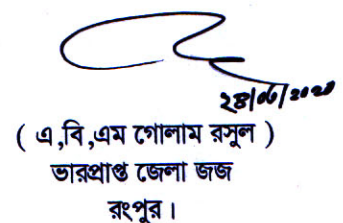 ২৪/০৬/২০২০
( এ,বি,এম গোলাম রসুল )
ভারপ্রাপ্ত জেলা জজ
রংপুর।